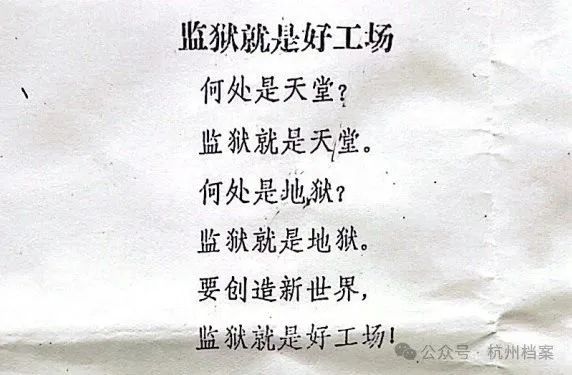 监狱就是好工场
何处是天堂?
监狱就是天堂。
何处是地狱?
监狱就是地狱。
要创造新世界,
监狱就是好工场!
公众号·杭州档案